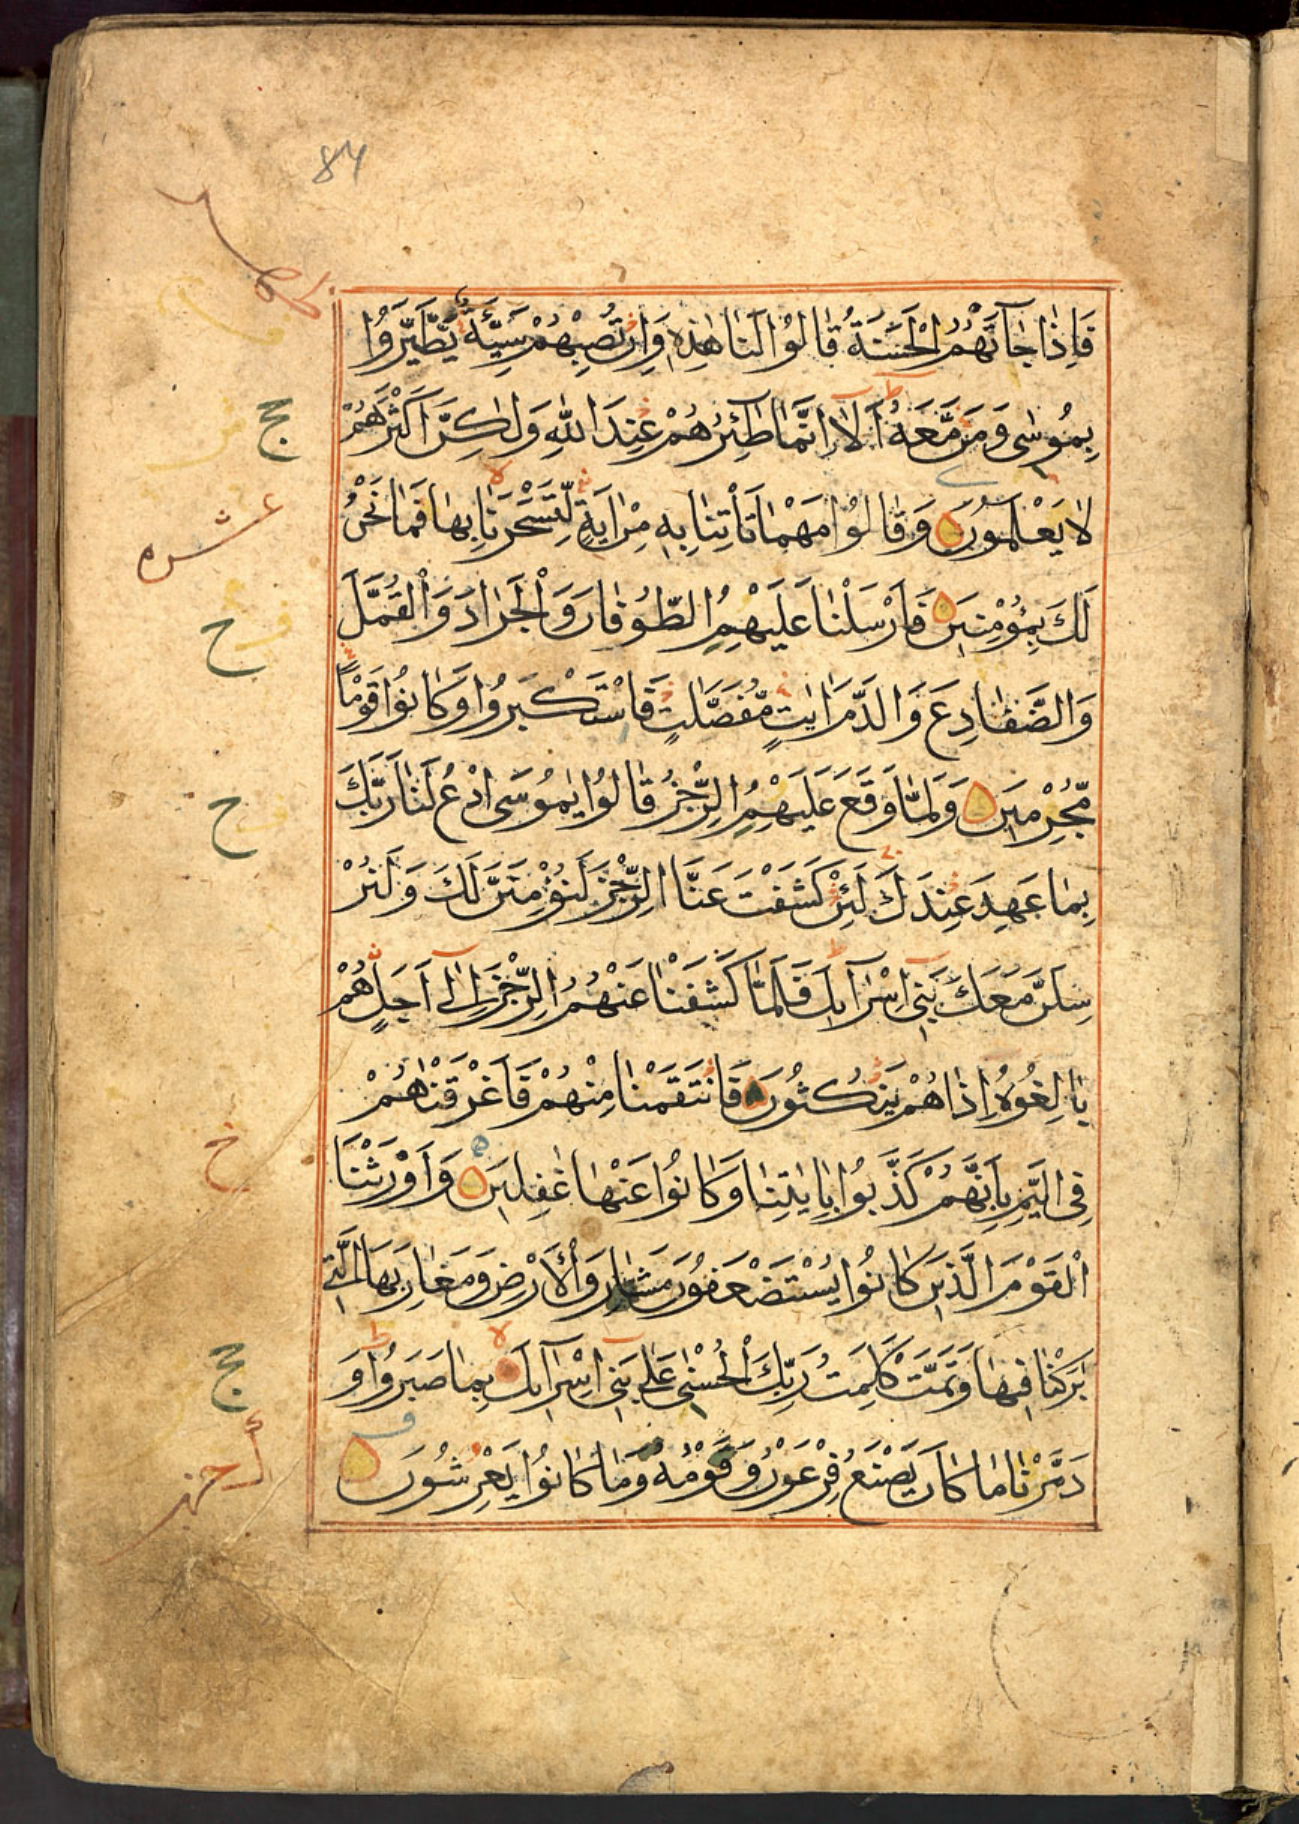 84
فَاِذَا جَآءَتْهُمُ الْحَسَنَةُ قَالُوْا لَنَا هٰذِهٖ وَاِنْ تُصِبْهُمْ سَيِّئَةٌ يَّطَّيَّرُوْا
بِمُوْسٰى وَمَنْ مَّعَهٗ اَلَآ اِنَّمَا طٰٓئِرُهُمْ عِنْدَ اللّٰهِ وَلٰكِنَّ اَكْثَرَهُمْ
لَا يَعْلَمُوْنَ وَقَالُوْا مَهْمَا تَأْتِنَا بِهٖ مِنْ اٰيَةٍ لِّتَسْحَرَنَا بِهَا فَمَا نَحْنُ
عشره
لَكَ بِمُؤْمِنِيْنَ فَاَرْسَلْنَا عَلَيْهِمُ الطُّوْفَانَ وَالْجَرَادَ وَالْقُمَّلَ
وَالضَّفَادِعَ وَالدَّمَ اٰيٰتٍ مُّفَصَّلٰتٍ فَاسْتَكْبَرُوْا وَكَانُوْا قَوْمًا
مُّجْرِمِيْنَ وَلَمَّا وَقَعَ عَلَيْهِمُ الرِّجْزُ قَالُوْا يٰمُوْسَى ادْعُ لَنَا رَبَّكَ
بِمَا عَهِدَ عِنْدَكَ لَئِنْ كَشَفْتَ عَنَّا الرِّجْزَ لَنُؤْمِنَنَّ لَكَ وَلَنُرْ
سِلَنَّ مَعَكَ بَنِيْٓ اِسْرَآئِيْلَ فَلَمَّا كَشَفْنَا عَنْهُمُ الرِّجْزَ اِلٰٓى اَجَلٍ هُمْ
بَالِغُوْهُ اِذَا هُمْ يَنْكُثُوْنَ فَانْتَقَمْنَا مِنْهُمْ فَاَغْرَقْنٰهُمْ
فِى الْيَمِّ بِاَنَّهُمْ كَذَّبُوْا بِاٰيٰتِنَا وَكَانُوْا عَنْهَا غٰفِلِيْنَ وَاَوْرَثْنَا
الْقَوْمَ الَّذِيْنَ كَانُوْا يُسْتَضْعَفُوْنَ مَشَارِقَ الْاَرْضِ وَمَغَارِبَهَا الَّتِيْ
بٰرَكْنَا فِيْهَا وَتَمَّتْ كَلِمَتُ رَبِّكَ الْحُسْنٰى عَلٰى بَنِيْٓ اِسْرَآئِيْلَ بِمَا صَبَرُوْا وَ
دَمَّرْنَا مَا كَانَ يَصْنَعُ فِرْعَوْنُ وَقَوْمُهٗ وَمَا كَانُوْا يَعْرِشُوْنَ